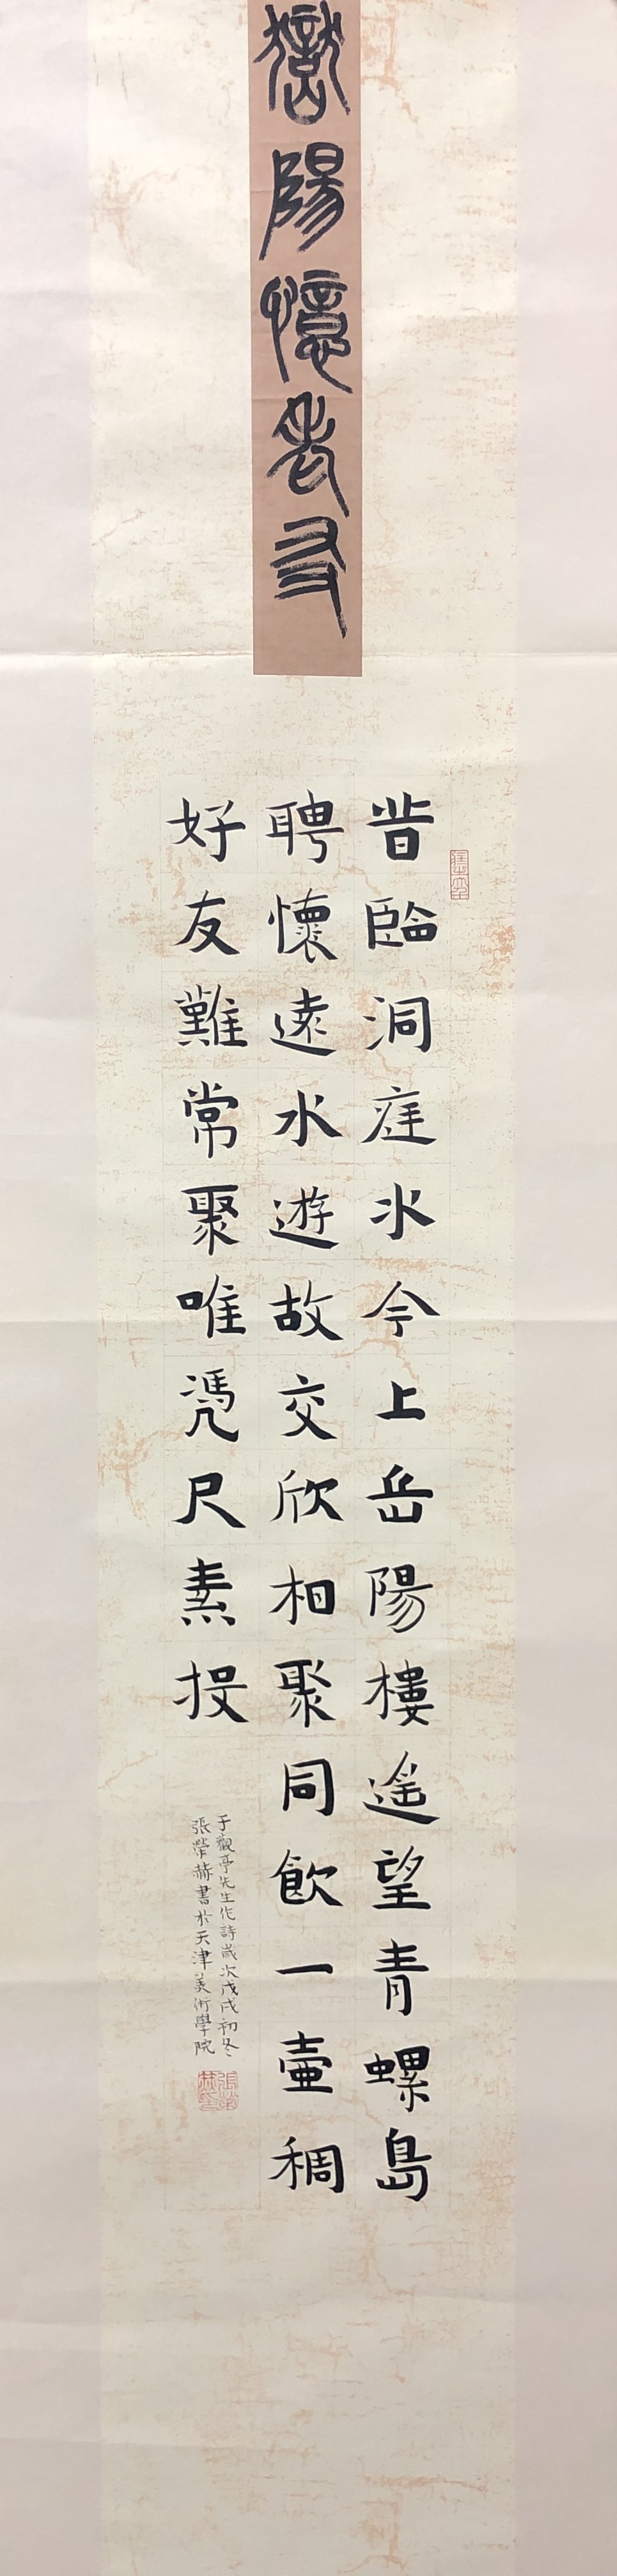 嶽陽憶老友
昔臨洞庭水今上岳陽樓遥望青螺島
聘懷遠水遊故交欣相聚同飲一壷稠
好友難常聚唯憑尺素投
于觀亭先生作詩歲次戊戌初冬
張榮赫書於天津美術學院